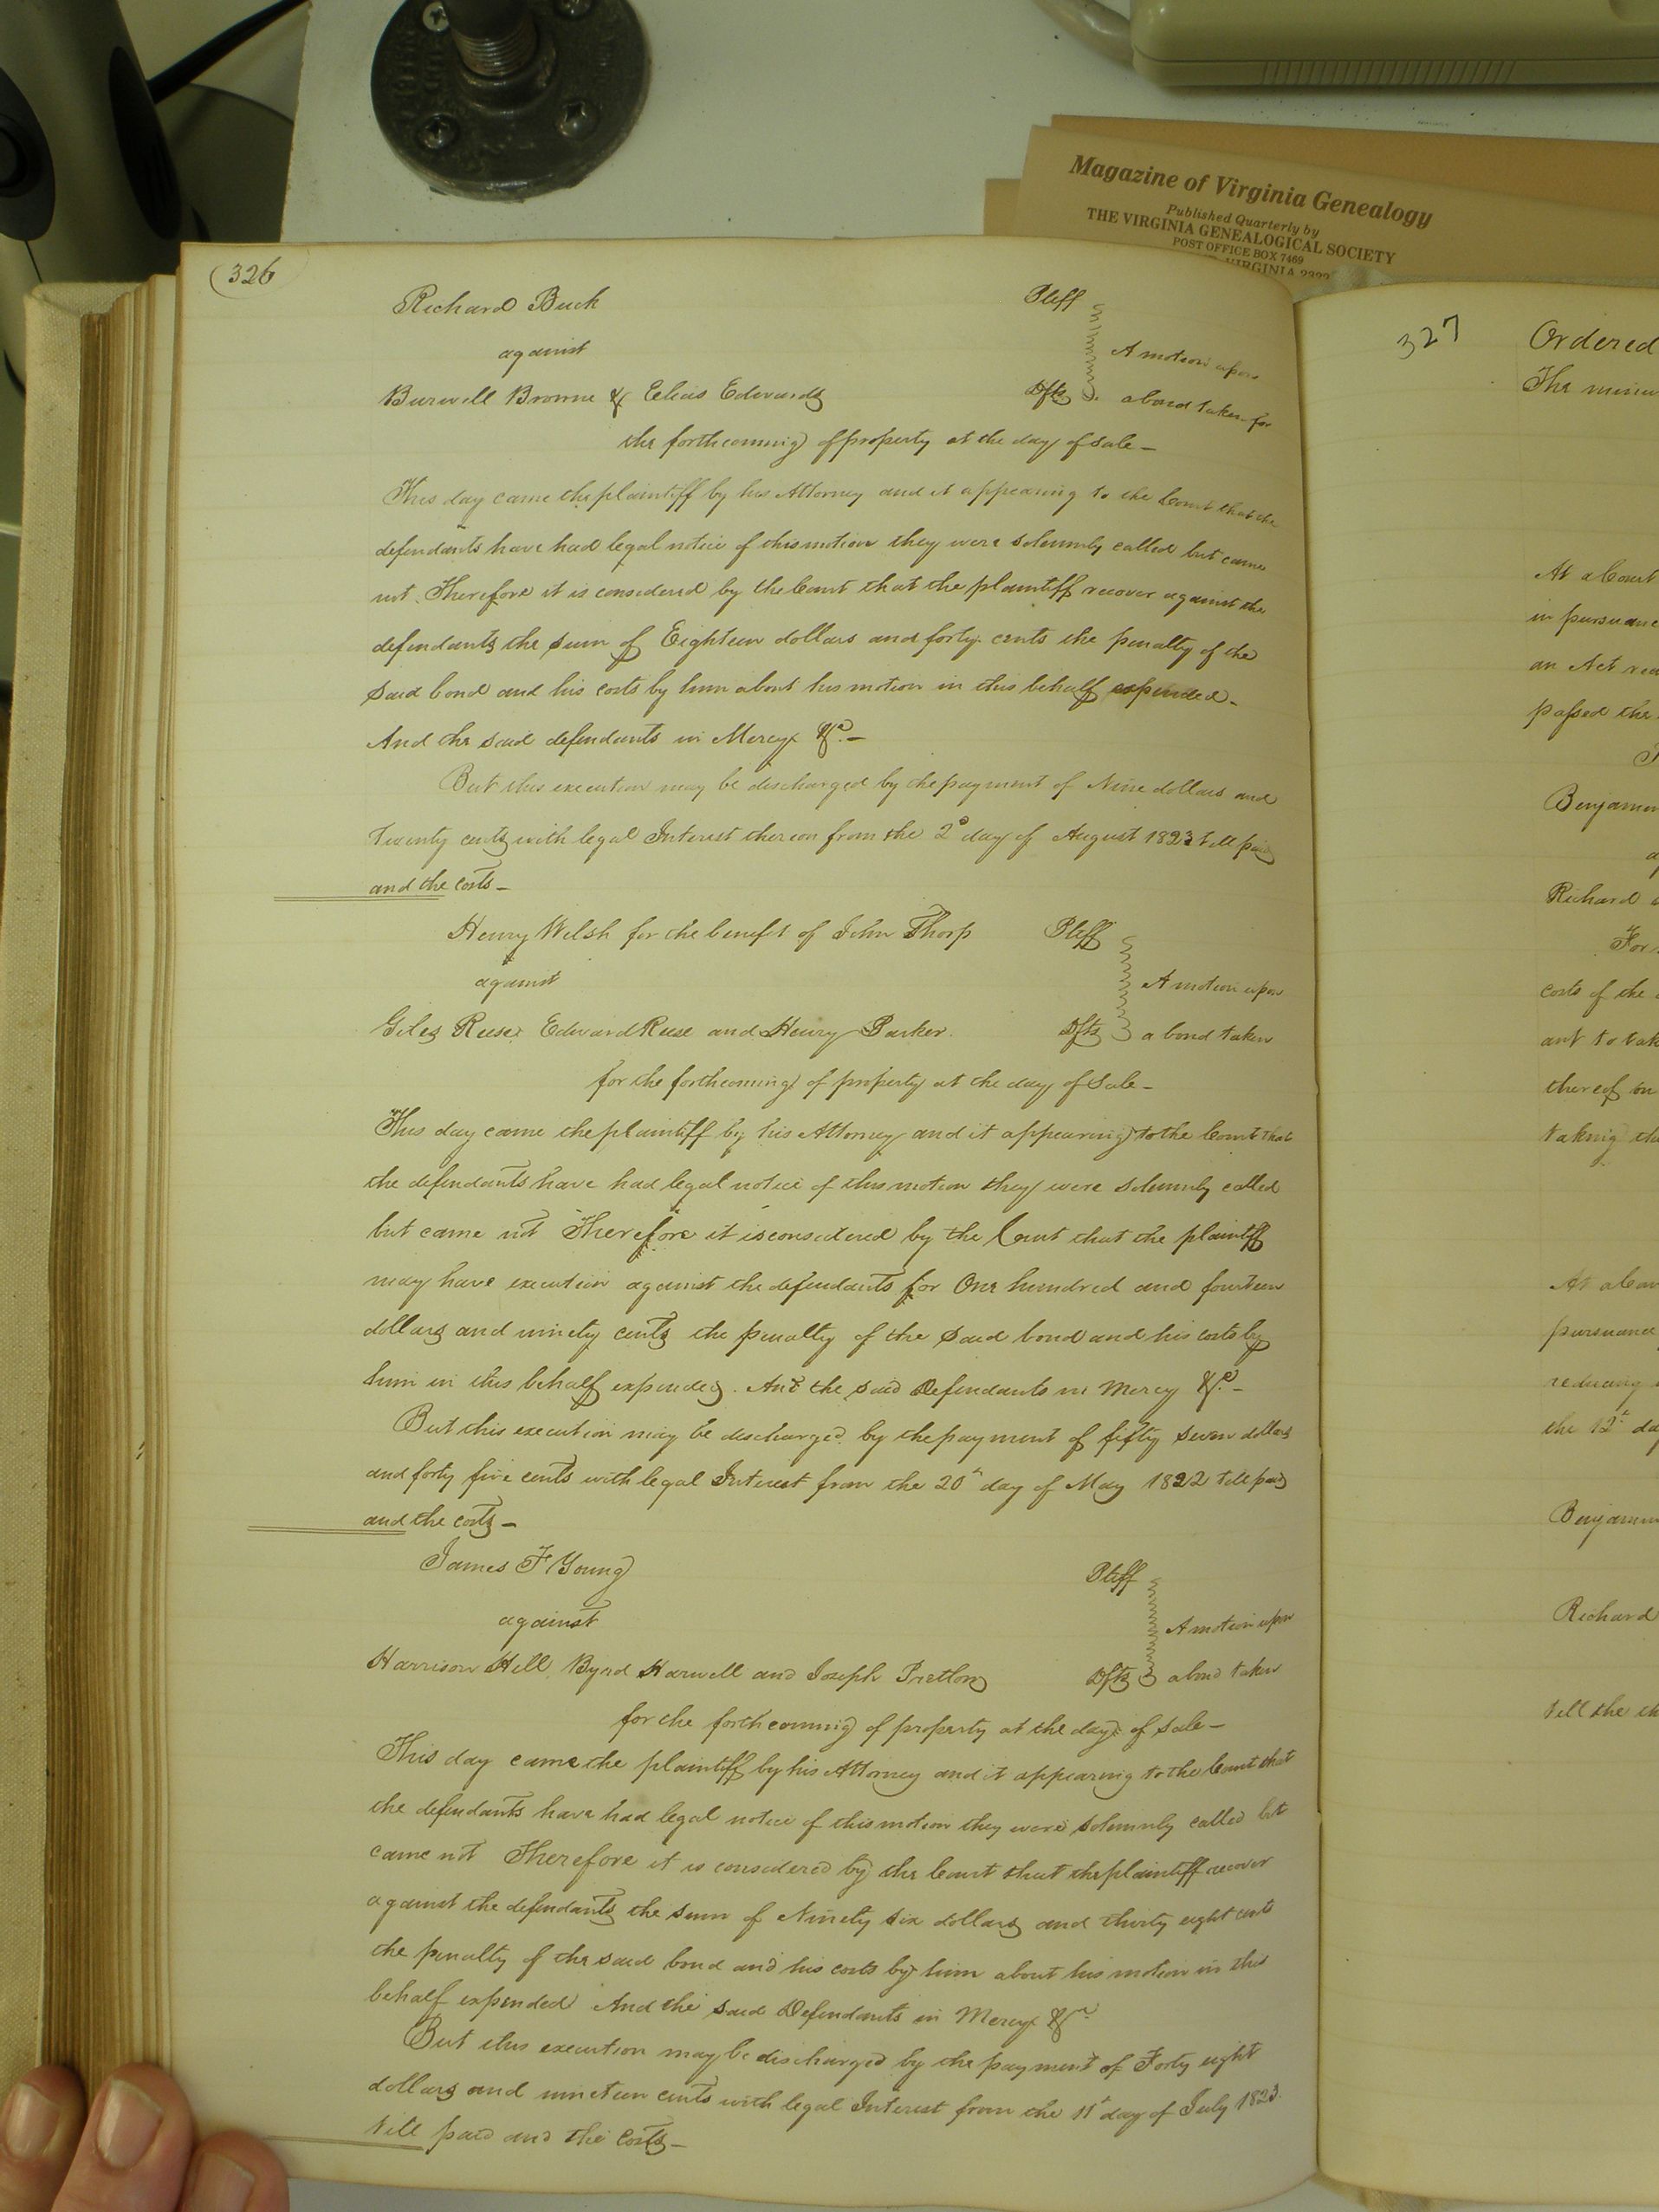 Magazine of Virginia Genealogy
Published Quarterly by
THE VIRGINIA GENEALOGICAL SOCIETY
POST OFFICE BOX 7469
VIRGINIA
(326
Richard Buck Pltff
against A motion upon
Burwell Browne & Elias Edwards Dfts a bond taken for
the forthcoming of property at the day of sale —
This day came the plaintiff by his Attorney and it appearing to the Court that the
defendants have had legal notice of this motion they were solemnly called but came
not. Therefore it is considered by the Court that the plaintiff recover against the
defendants the sum of Eighteen dollars and forty cents the penalty of the
said bond and his costs by him about his motion in this behalf expended —
And the said defendants in Mercy &c. —
But this execution may be discharged by the payment of Nine dollars and
Twenty cents with legal Interest thereon from the 2d day of August 1823 till paid
and the costs —
Henry Welsh for the benefit of John Thorp Pltff
against A motion upon
Giles Reese Edward Reese and Henry Parker Dfts a bond taken
for the forthcoming of property at the day of sale —
This day came the plaintiff by his Attorney and it appearing to the Court that
the defendants have had legal notice of this motion they were solemnly called
but came not Therefore it is considered by the Court that the plaintiff
may have execution against the defendants for One hundred and fourteen
dollars and ninety cents the penalty of the said bond and his costs by
him in this behalf expended. And the said Defendants in Mercy &c. —
But this execution may be discharged by the payment of fifty seven dollars
and forty five cents with legal Interest from the 20th day of May 1822 till paid
and the costs —
James F Young Pltff
against A motion upon
Harrison Hill, Byrd Harwell and Joseph Pretlow Dfts a bond taken
for the forthcoming of property at the day of sale —
This day came the plaintiff by his Attorney and it appearing to the Court that
the defendants have had legal notice of this motion they were solemnly called but
came not Therefore it is considered by the Court that the plaintiff recover
against the defendants the sum of Ninety six dollars and thirty eight cents
the penalty of the said bond and his costs by him about his motion in this
behalf expended And the said Defendants in Mercy &c.
But this execution may be discharged by the payment of Forty eight
dollars and nineteen cents with legal Interest from the 11th day of July 1823.
till paid and the costs —
327
Ordered
The
At a Court
in
an Act
passed the
Benjamin
Richard
For
costs of the
ant to
thereof on
taking
pursuance
reducing
the 12th
Benjamin
Richard
till the